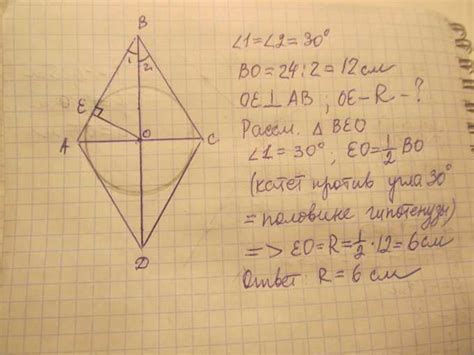 B
1 2
E
A O C
D
∠1=∠2=30°
BO=24:2=12см
OE⊥AB ; OE-R-?
Рассм. △ BEO
∠1=30°, EO=1/2 BO
(катет против угла 30°
=половине гипотенузы)
=> EO=R=1/2·12=6см
Ответ R=6 см